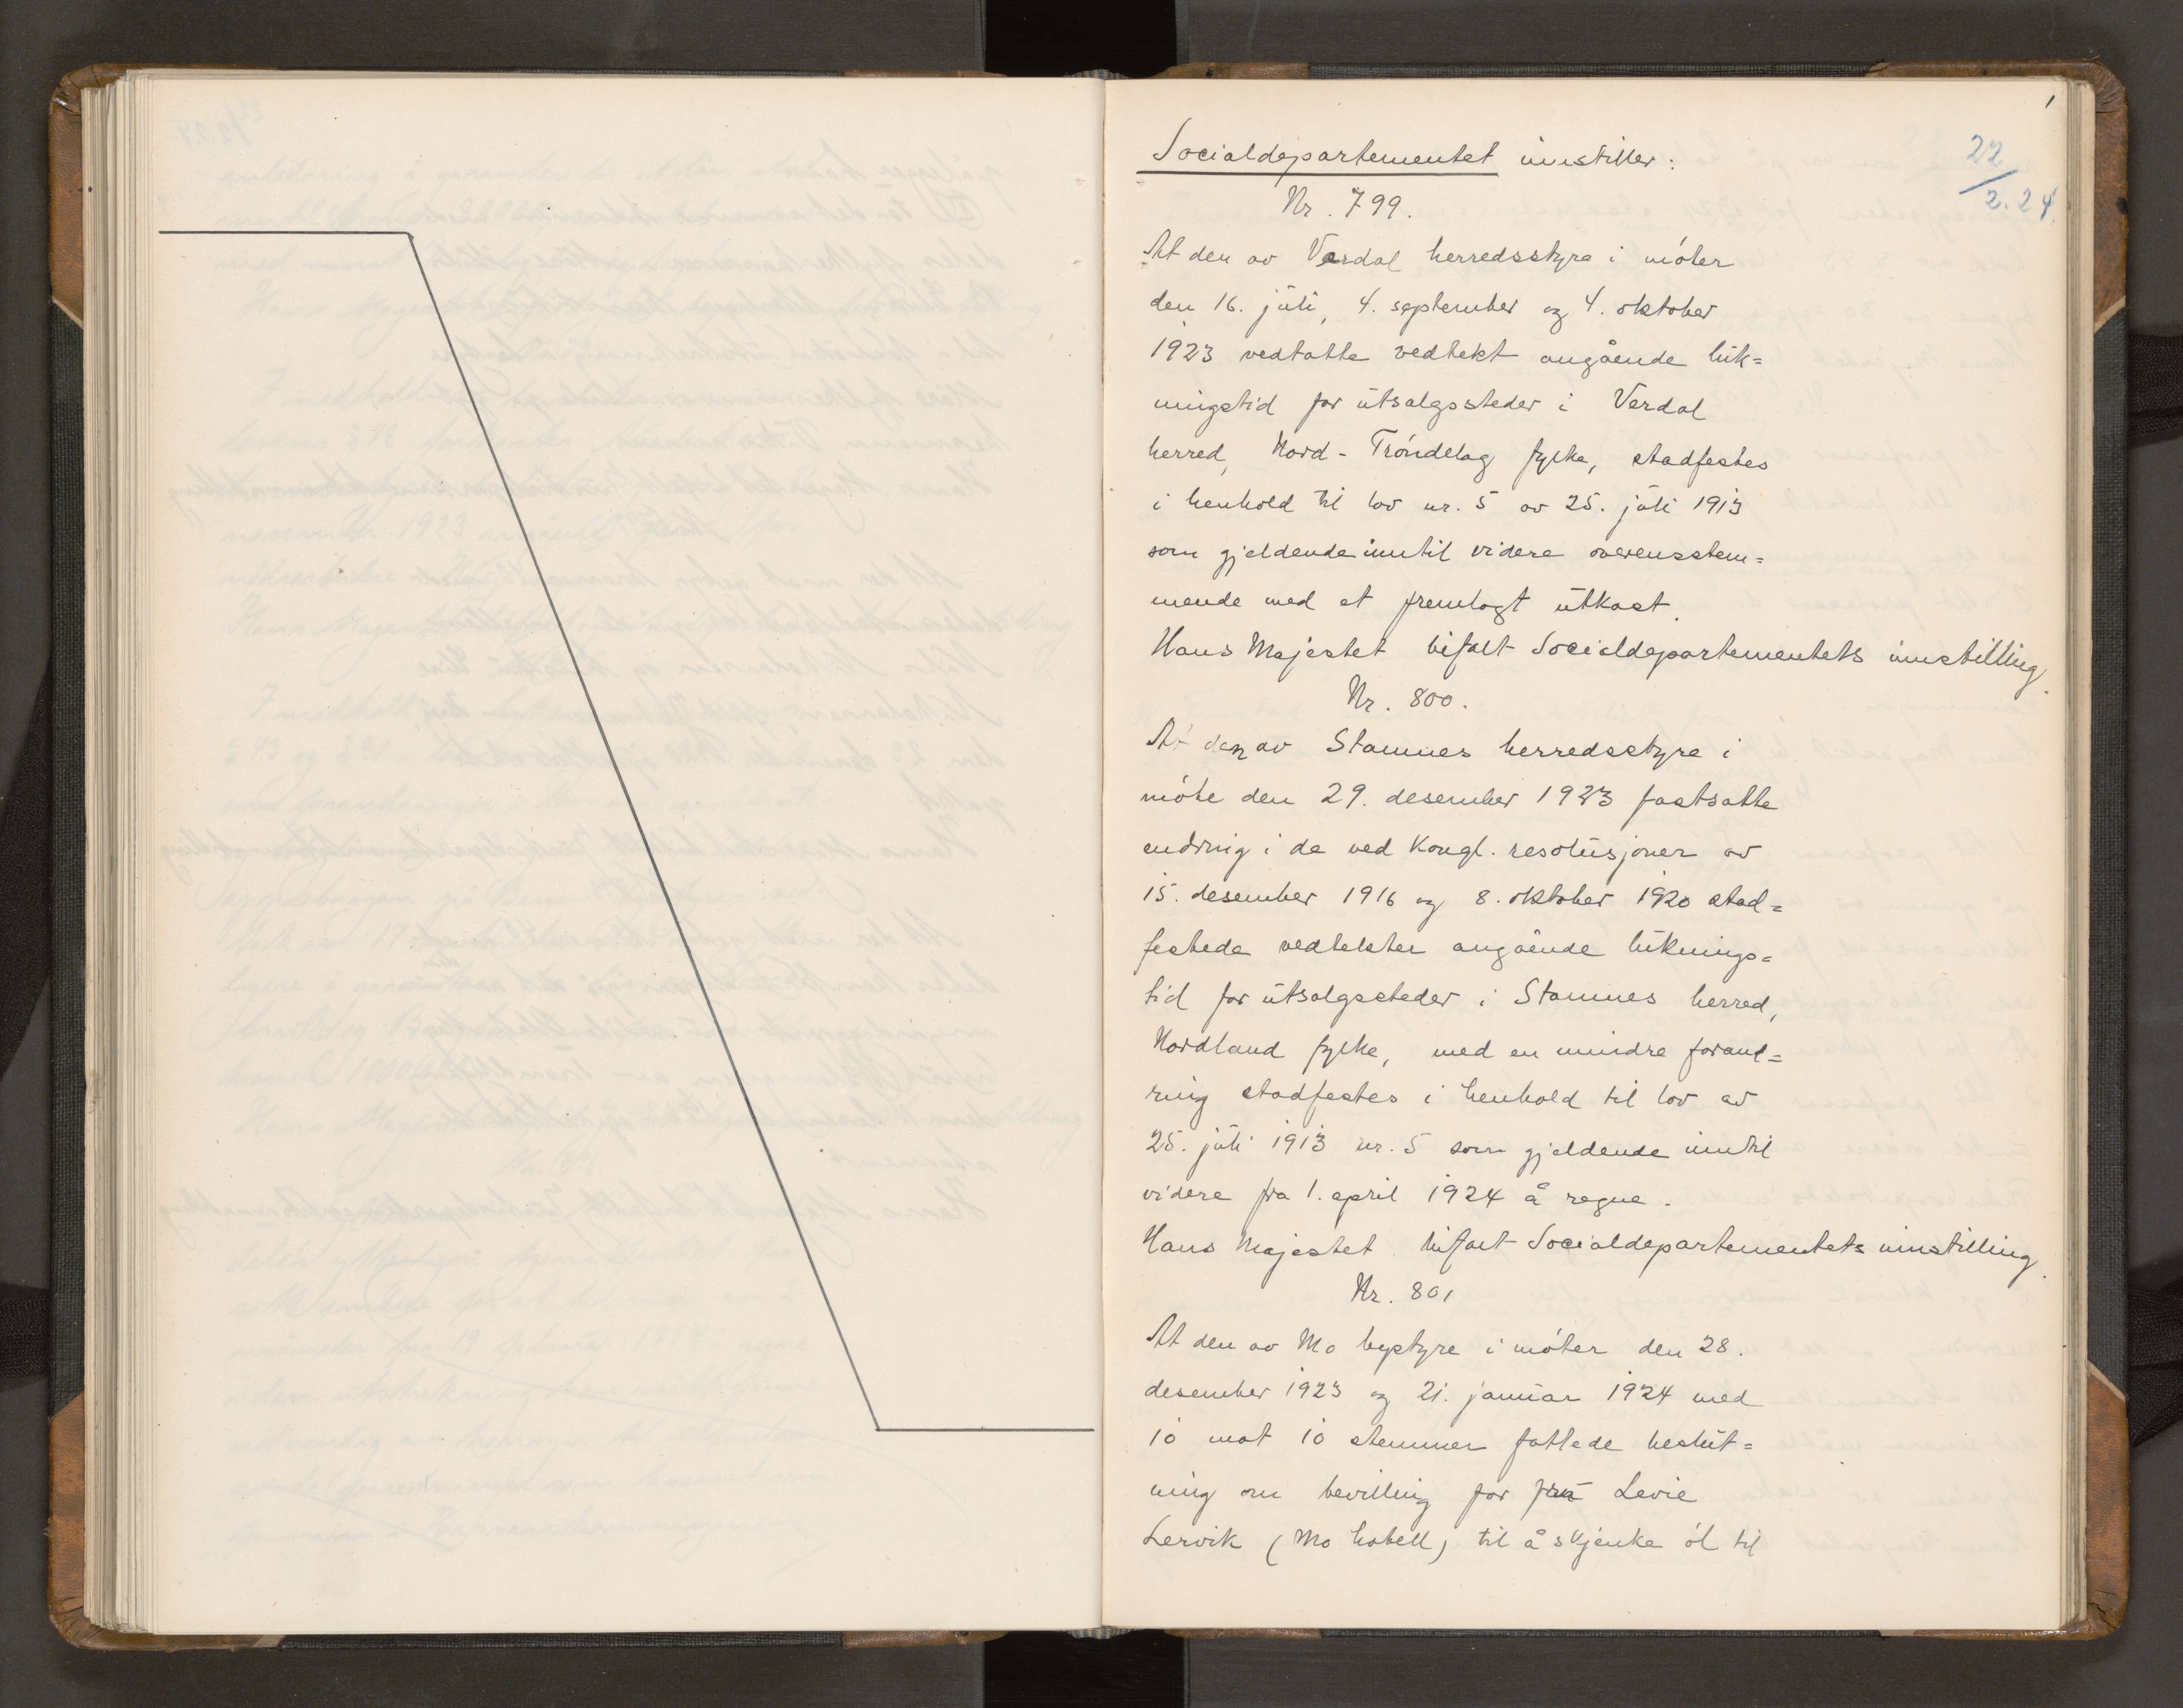 1
22/2.24.
Socialdepartementet innstiller:
Nr. 799.
At den av Verdal herredsstyre i møter
den 16. juli, 4. september og 4. oktober
1923 vedtatte vedtekt angående luk=
ningstid for utsalgssteder i Verdal
herred, Nord-Trøndelag fylke, stadfestes
i henhold til lov nr. 5 av 25. juli 1913
som gjeldende inntil videre overensstem=
mende med et fremlagt utkast.
Hans Majestet bifalt Socialdepartementets innstilling.
Nr. 800.
At den av Stamnes herredsstyre i
møte den 29. desember 1923 fastsatte
endring i de ved Kongl. resolusjoner av
15. desember 1916 og 8. oktober 1920 stad=
festede vedtekter angående luknings=
tid for utsalgssteder i Stamnes herred,
Nordland fylke, med en mindre forand=
ring stadfestes i henhold til lov av
25. juli 1913 nr. 5 som gjeldende inntil
videre fra 1. april 1924 å regne.
Hans Majestet bifalt Socialdepartementets innstilling.
Nr. 801
At den av Mo bystyre i møter den 28.
desember 1923 og 21. januar 1924 med
10 mot 10 stemmer fattede beslut=
ning om bevilling for fru Levie
Lervik (Mo hotell) til å skjenke øl til